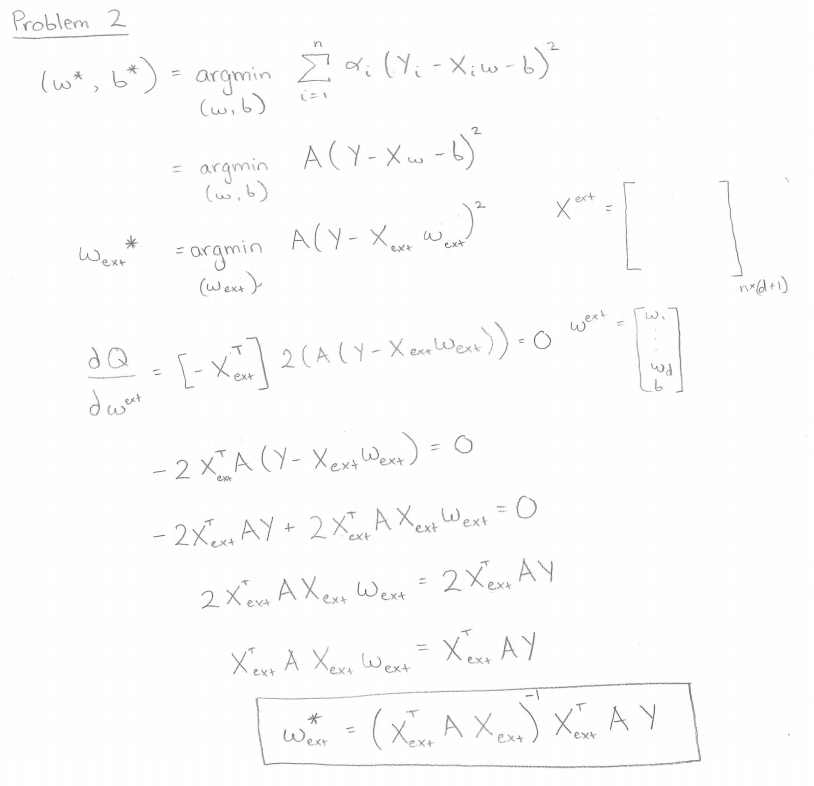 Problem 2
(w*, b*) = argmin (w,b) Σ_{i=1}^{n} α_i (Y_i - X_i w - b)²
= argmin (w,b) A(Y - Xw - b)²
w_ext* = argmin (w_ext) A(Y - X_ext w_ext)²
X^ext = [ ] n×(d+1)
dQ/dw^ext = [-X_ext^T] 2(A(Y - X_ext w_ext)) = 0
w^ext = [w₁ ⋮ w_d b]
-2X_ext^T A(Y - X_ext w_ext) = 0
-2X_ext^T AY + 2X_ext^T A X_ext w_ext = 0
2X_ext^T A X_ext w_ext = 2X_ext^T AY
X_ext^T A X_ext w_ext = X_ext^T AY
w_ext* = (X_ext^T A X_ext)^-1 X_ext^T A Y